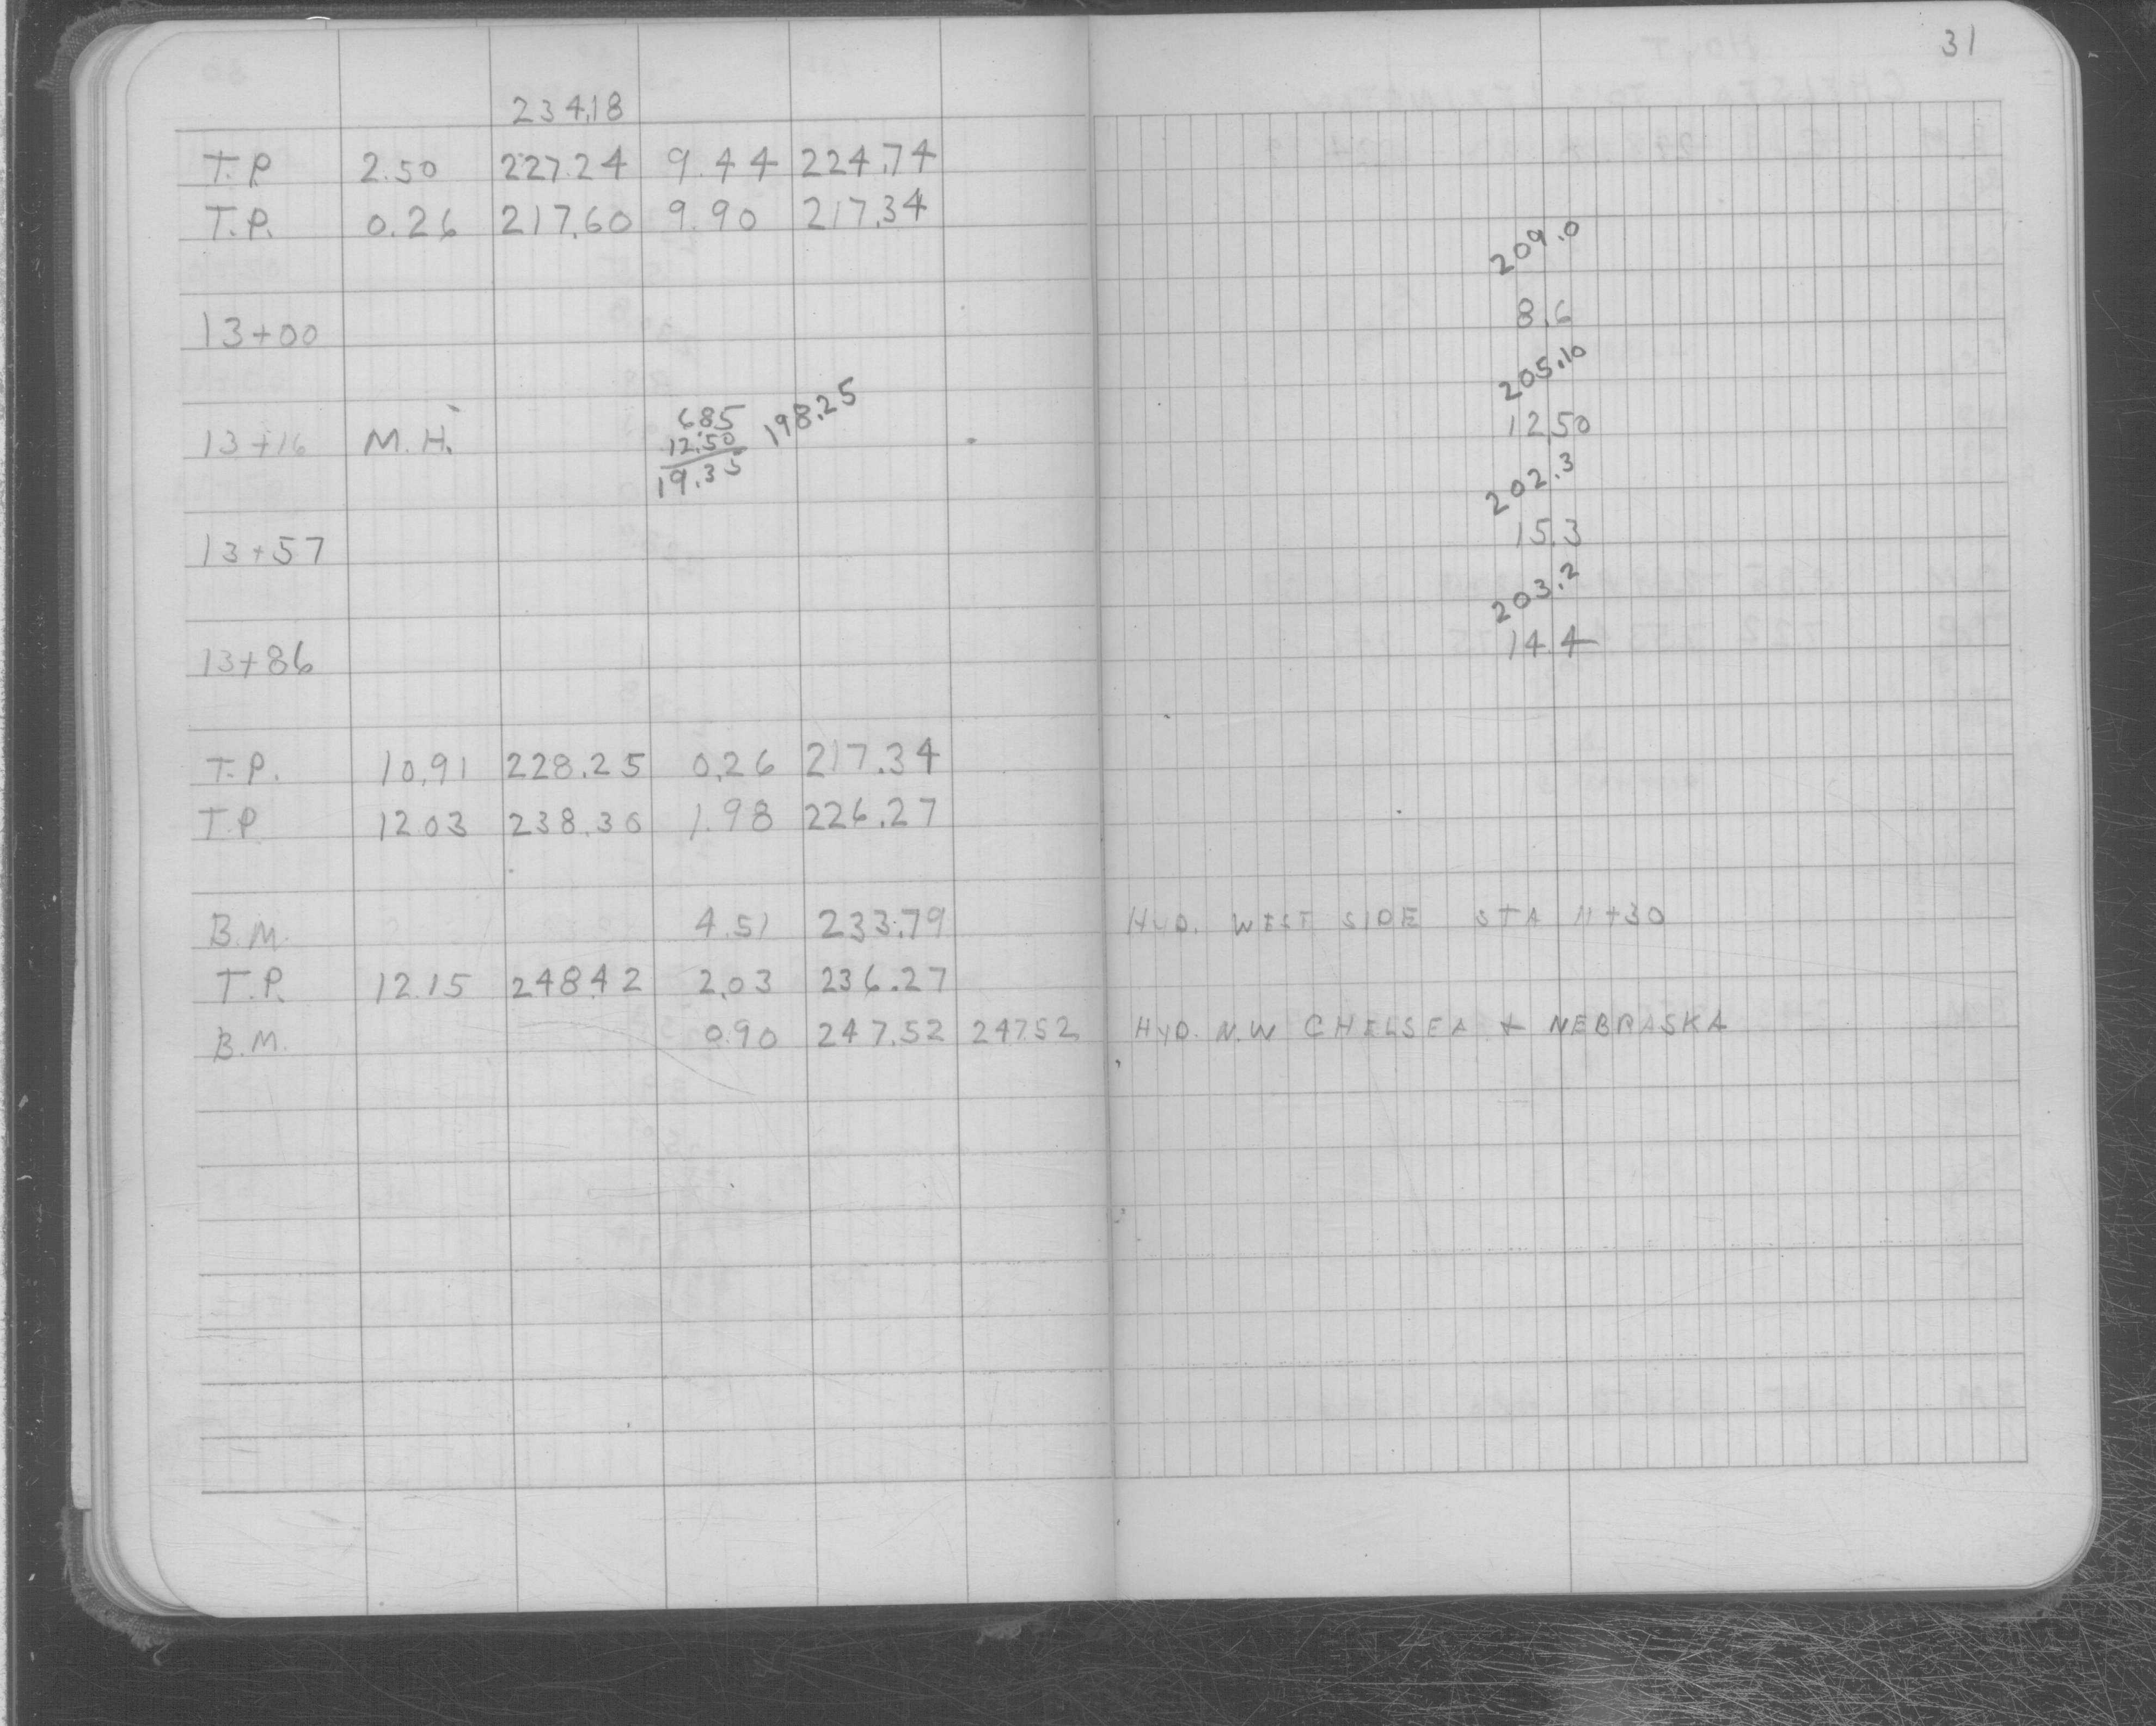 31
234.18
T.P. 2.50 227.24 9.44 224.74
T.P. 0.26 217.60 9.90 217.34
209.0
13+00 8.6
205.10
13+16 M.H. 6.85 12.50 19.35 198.25 12.50
202.3
13+57 15.3
203.2
13+86 14.4
T.P. 10.91 228.25 0.26 217.34
T.P 12.03 238.30 1.98 226.27
B.M. 4.51 233.79 HYD. WEST SIDE STA 11+30
T.P. 12.15 248.42 2.03 236.27
B.M. 0.90 247.52 247.52 HYD. N.W CHELSEA + NEBRASKA